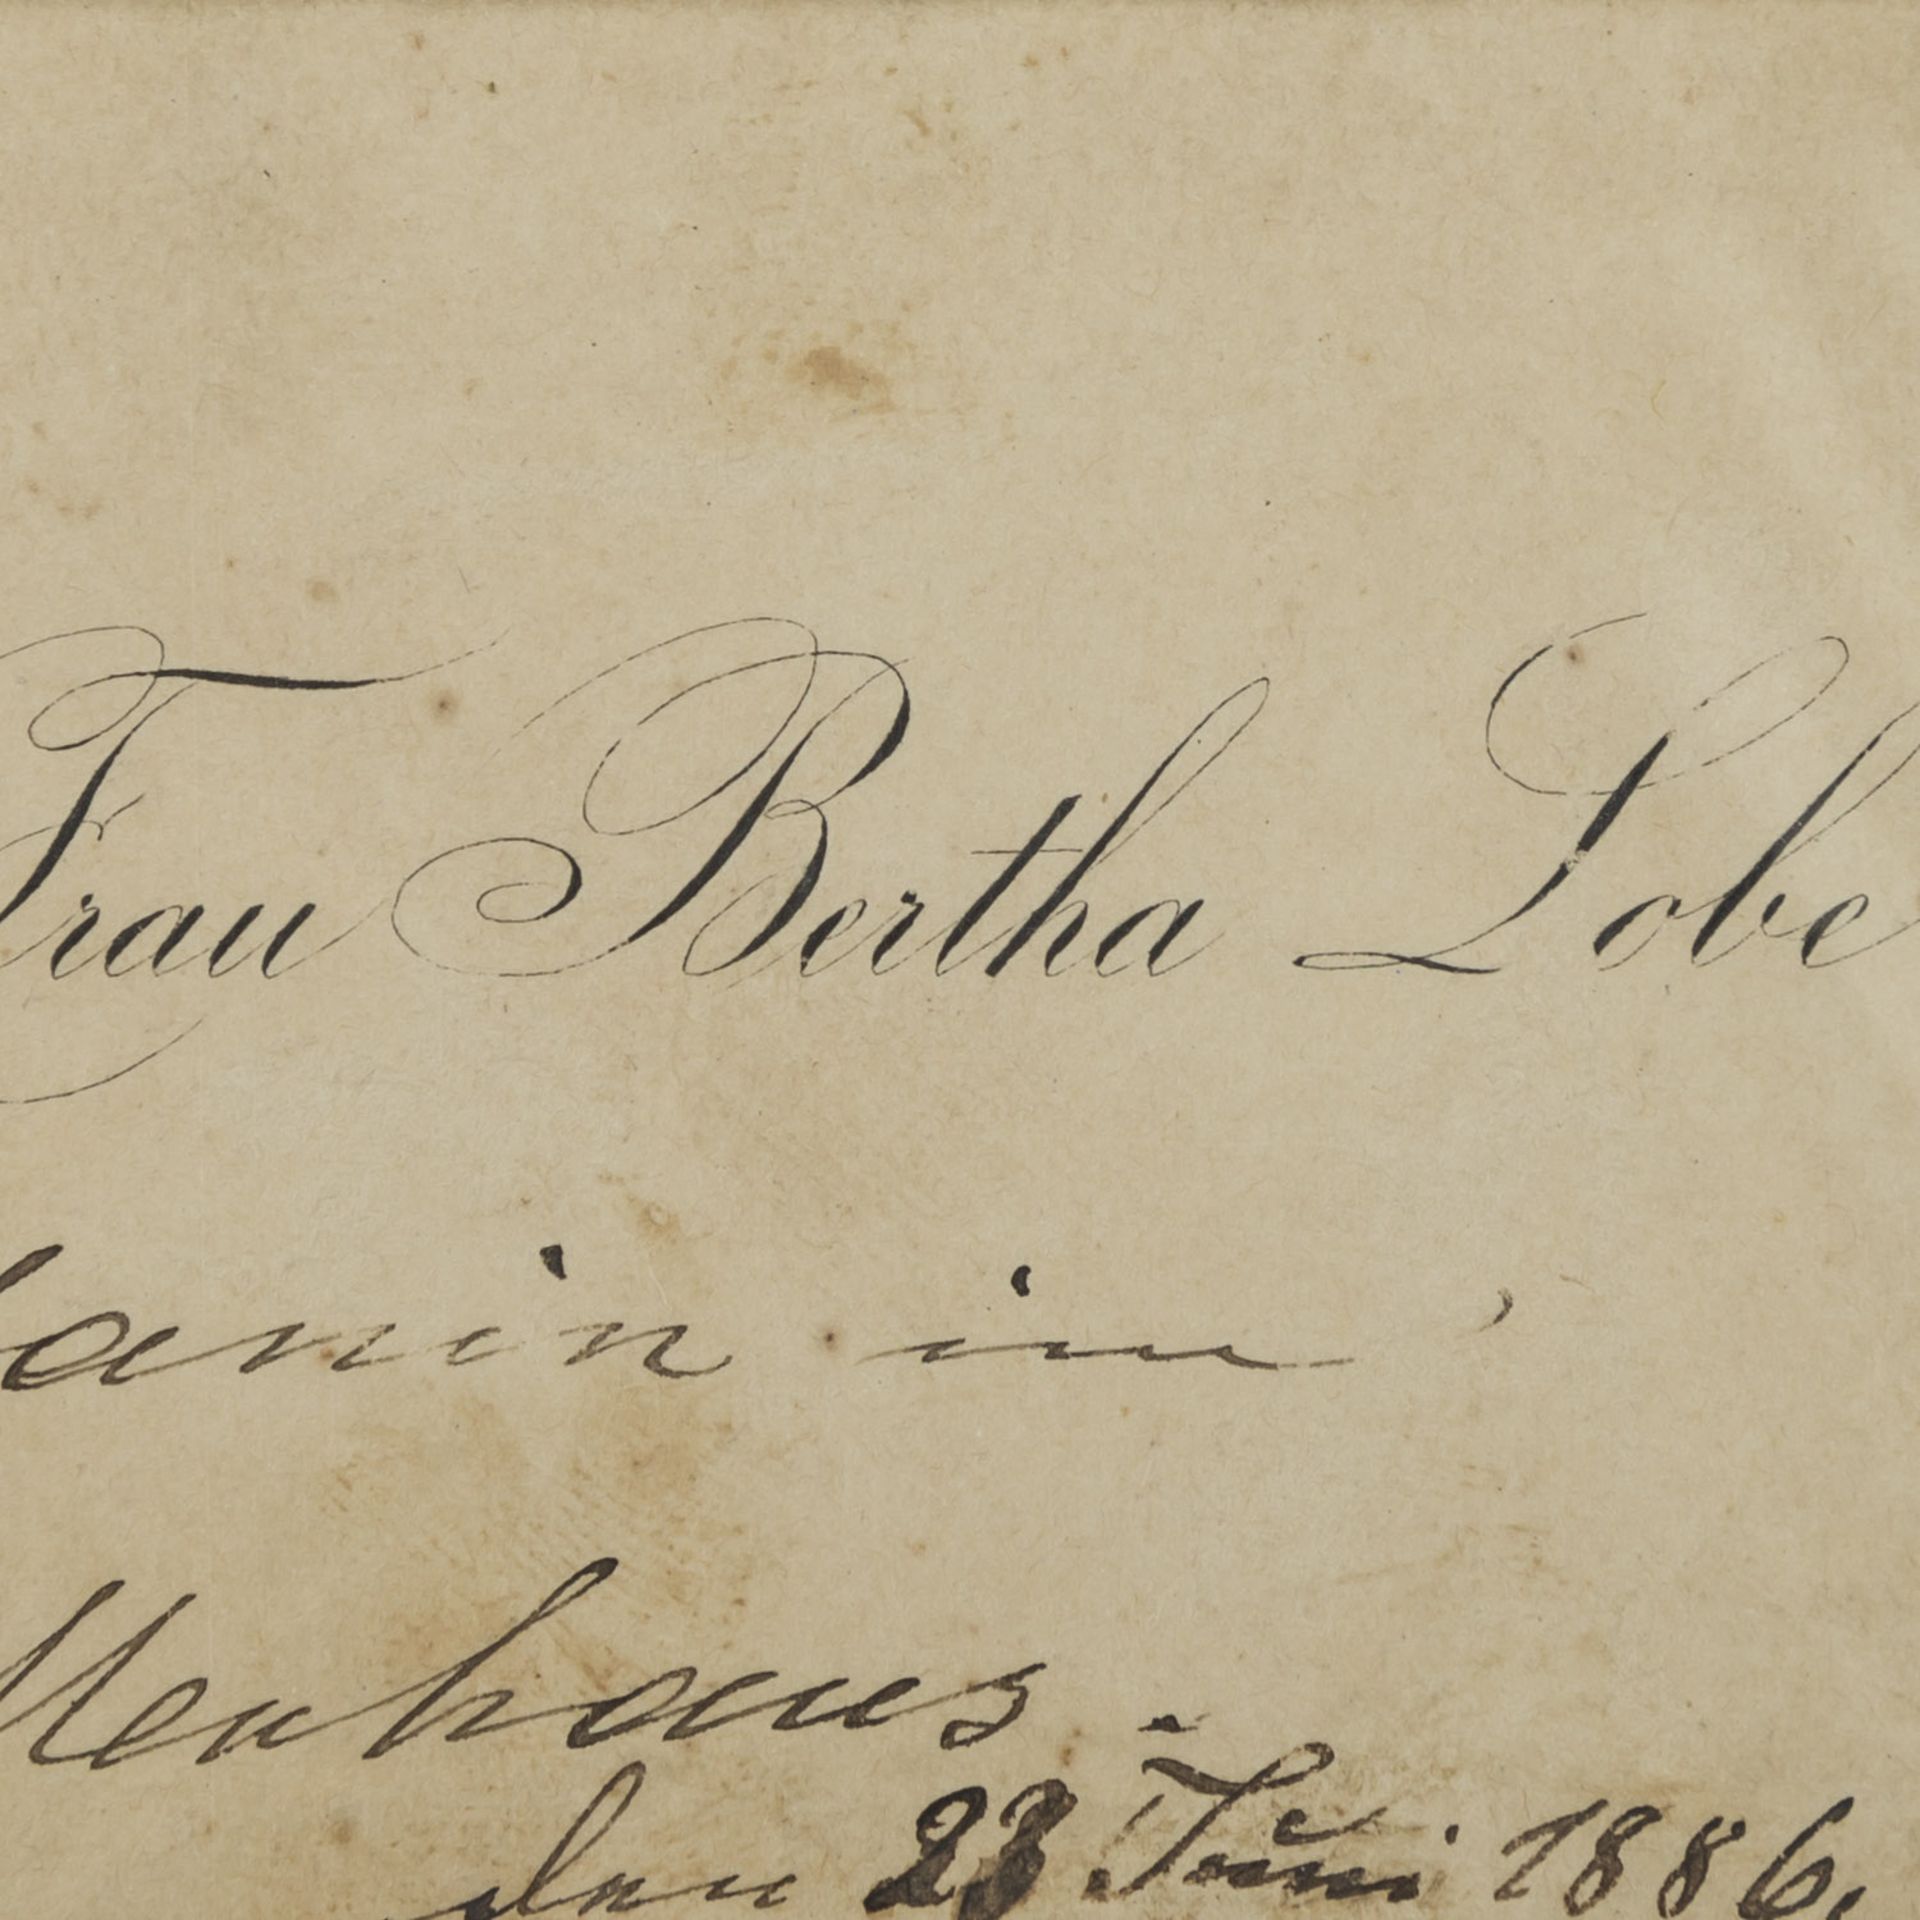 Frau Bertha Lobe
anin im
Neuhaus.
den 23 Juni 1886.